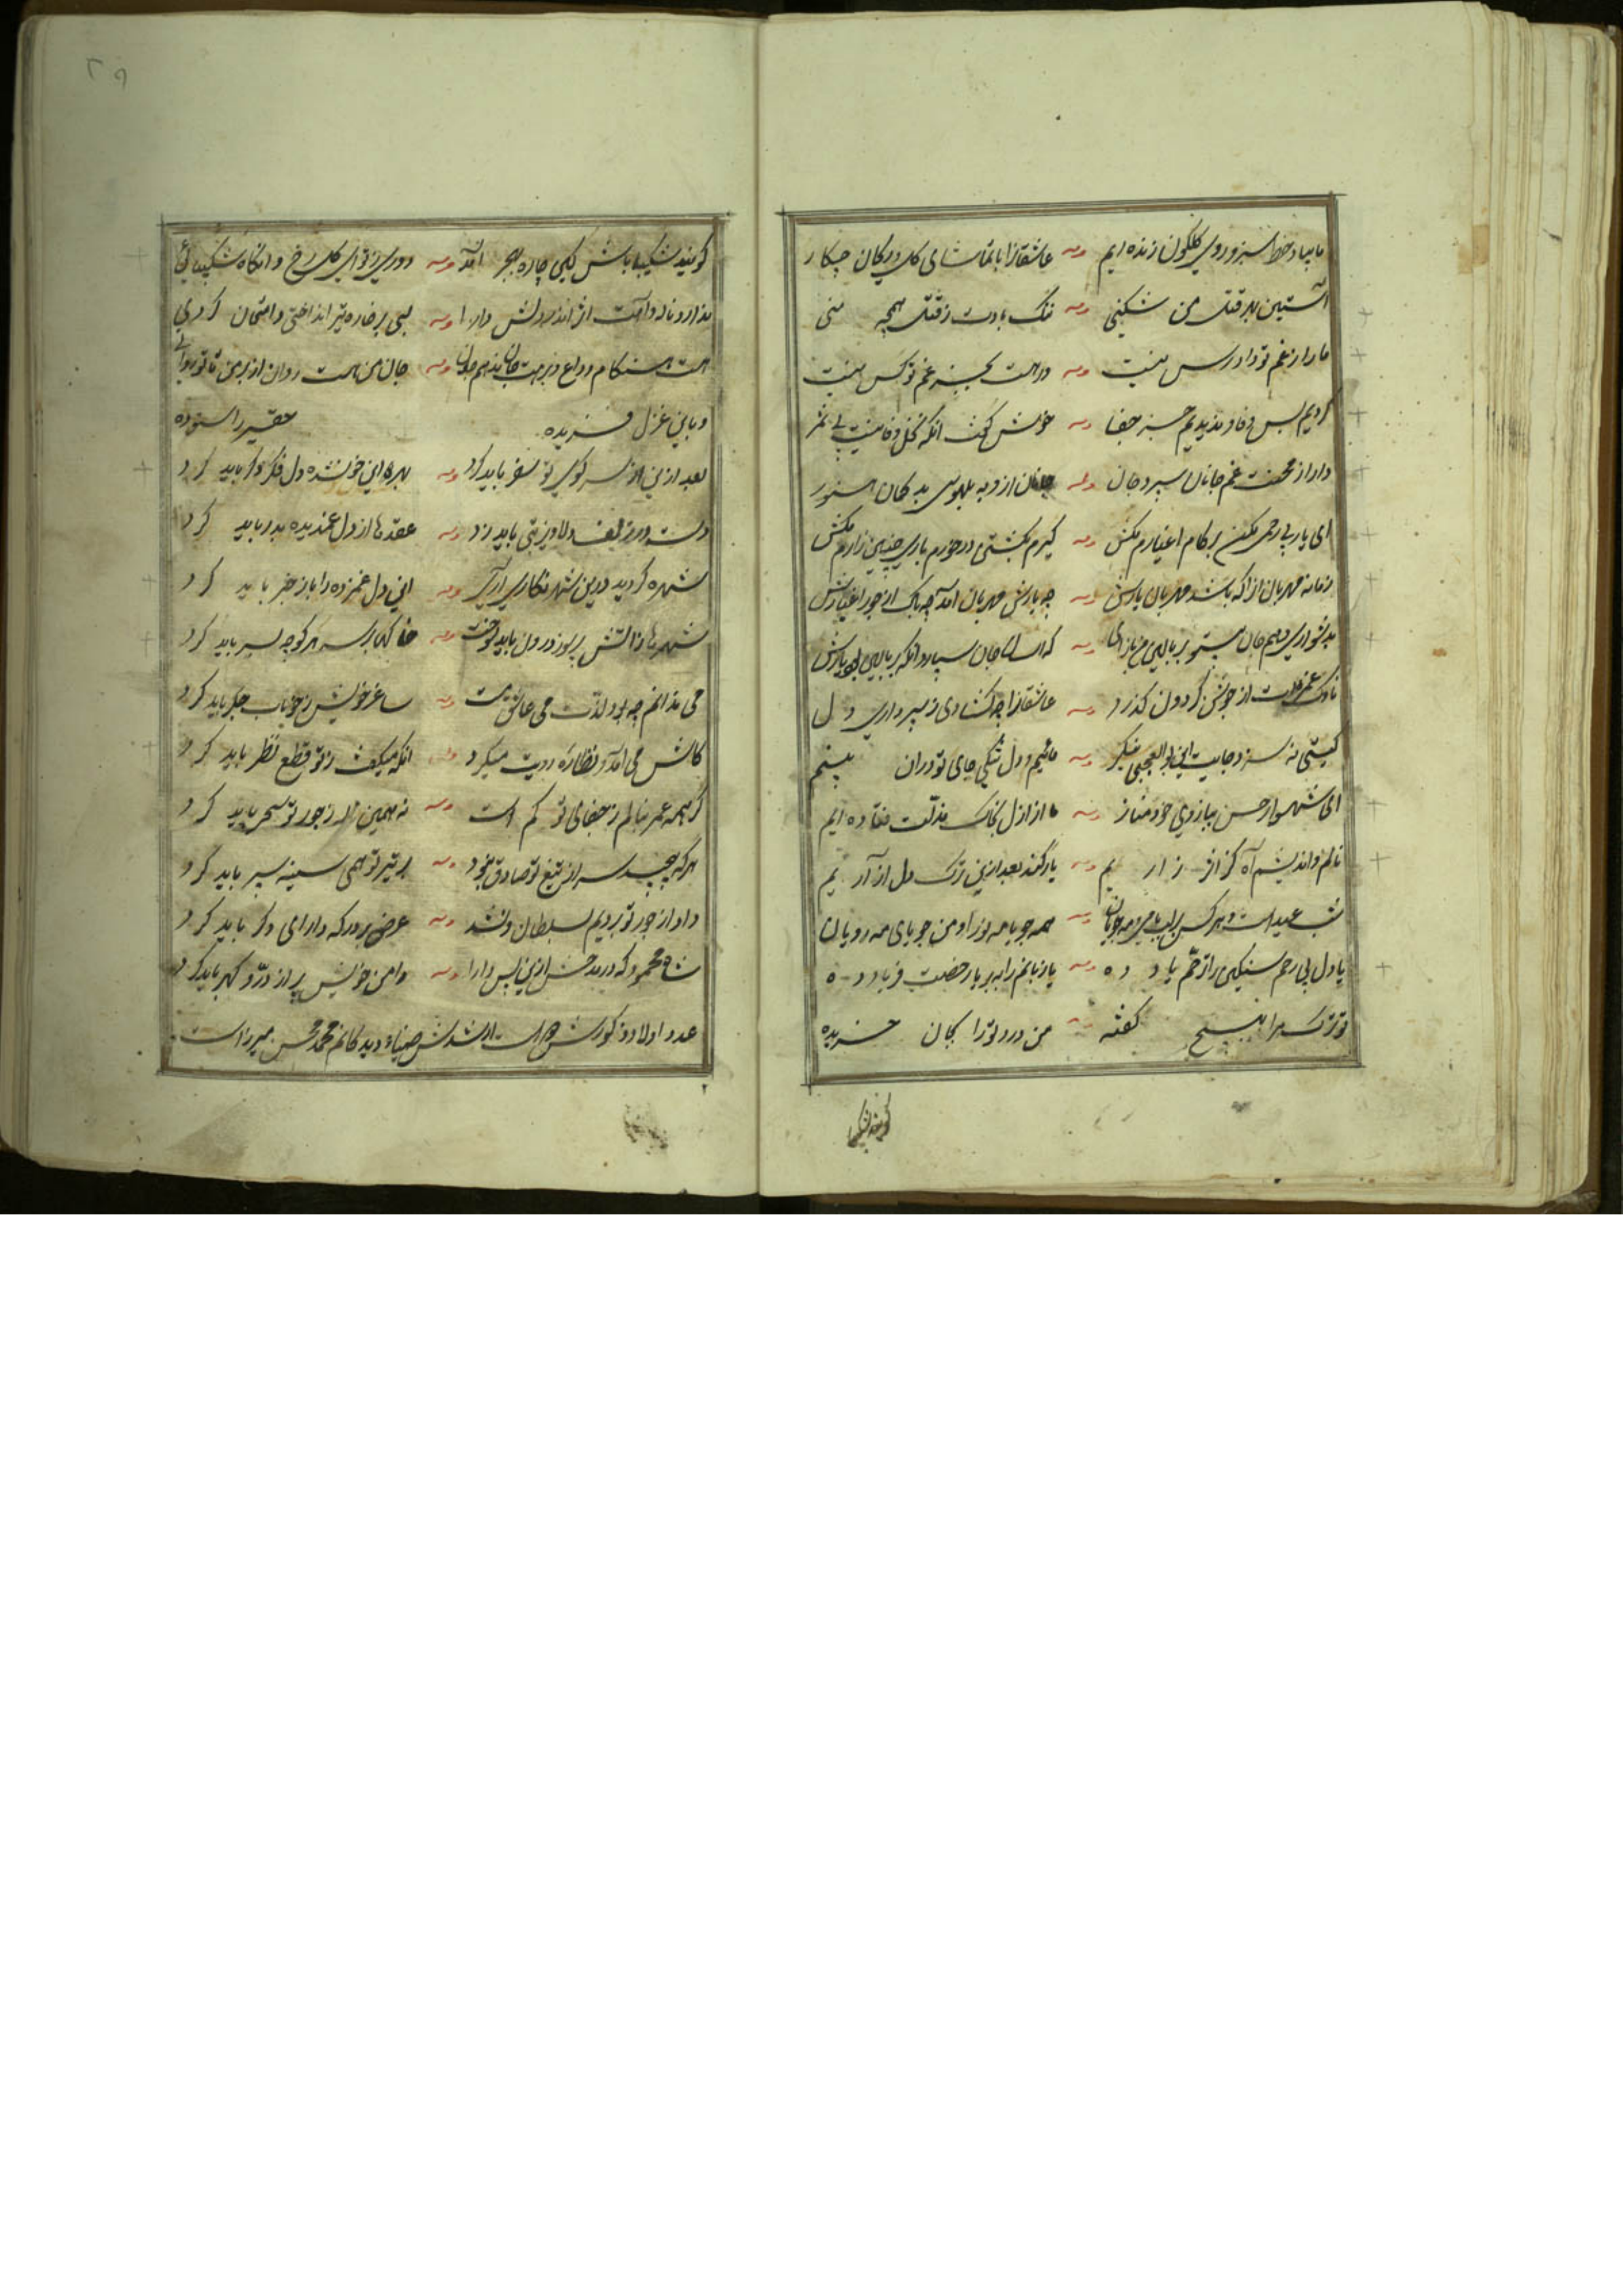 ما بیاد خط سبز و روی گلگون زنده ایم وله عاشقانرا با تماشای گل و ریحان چکار
آستین بهر قتل من شکنی وله ننگ بادت ز قتل همچه منی
ما را ز غم تو دادرس نیست وله درا هست بجز غم تو کس نیست
کردیم بس وفا و ندیدیم جز جفا وله خوش گفت آنکه نخل وفا نیست بی ثمر
دارا ز محنت غم جانان سپرد جان وله جانان ازو به بلهوسی بد گمان هنوز
ای یار بی رحمی مکن بر کام اغیارم مکش وله گیرم بکشتی در خورم باری چنین زارم مکش
زمانه مهربان انرا که باشد مهربان یارش وله چه یارش مهربان آمد چه باک از جور اغیارش
بدشواری دهم جان بیتو بر بالین من بازای وله که اسان جان سپارد آنکه بر بالین بود یارش
ناوک غمزه ات از جوشن گردون گذرد وله عاشقانرا چه گشادی ز سپرداری دل
گیتی نه سزد جایت این بوالعجبی بنگر وله مائیم و دل تنگی جای تو دران بینم
ای شهسوار حسن ببازوی خود مناز وله ما از ازل بخاک مذلت فتاده ایم
نالم و اندیشم آه کز اثر زاریم وله یار کند بعد ازین ترک دل آزاریم
شب عید است و هر کس بر لب بامی و مه جویان وله همه جویا مه نو را و من جویای مه رویان
یا دل بی رحم سنگین را ز رحم یاد ده وله یا زبانم را به بر یا رخصت فریاد ده
تو ترک مرا بهیچ گفته وله من درد تو را بجان خریده
گویند شکیبا
گویند شکیبا باش گفتی چاره هجر آمد وله دوری ز تو ای گل رخ و آنگاه شکیبائی
ندارد ناله دامنت اثر اندر دلش دارا وله بسی بر خاره تیر انداختی و امتحان کردی
هست هنگام وداع و ز برت جان ندهم وله جان من هست روان از بر من تا تو روانی
و باین غزل حقیر را ستوده
بعد ازین از سر کوی تو سفر باید کرد وله بهر این خون شده دل فکر دگر باید کرد
دست در زلف دلاویز بتی باید زد وله عقدها از دل غمدیده بدر باید کرد
شهره گردید درین شهر نگاری وله این دل غمزده را باز خبر باید کرد
شهرها ز آتش پر سوز درون باید سوخت وله خاکها بر سر هر کوچه بسر باید کرد
می ندانم چه بود لذت می عاشق مست وله ساغر خویش ز خوناب جگر باید کرد
کاش می آمد و نظاره رویت میکرد وله آنکه میگفت ز تو قطع نظر باید کرد
گر همه عمر بنالم ز جفای تو کم است وله نه همین ناله ز جور تو سحر باید کرد
هر که پیچد سر از تیغ تو صادق نبود وله بر تیر تو همی سینه سپر باید کرد
داد از جور تو بردیم بسلطان و نشد وله عرض بر درگه دارای دگر باید کرد
شاه محمود که در مدحش ازین پس دارا وله دامن خویش پر از در و گهر باید کرد
عدد اولاد ذکورش ارشدش ضیاء دیدگانم محمد محسن میرزاست